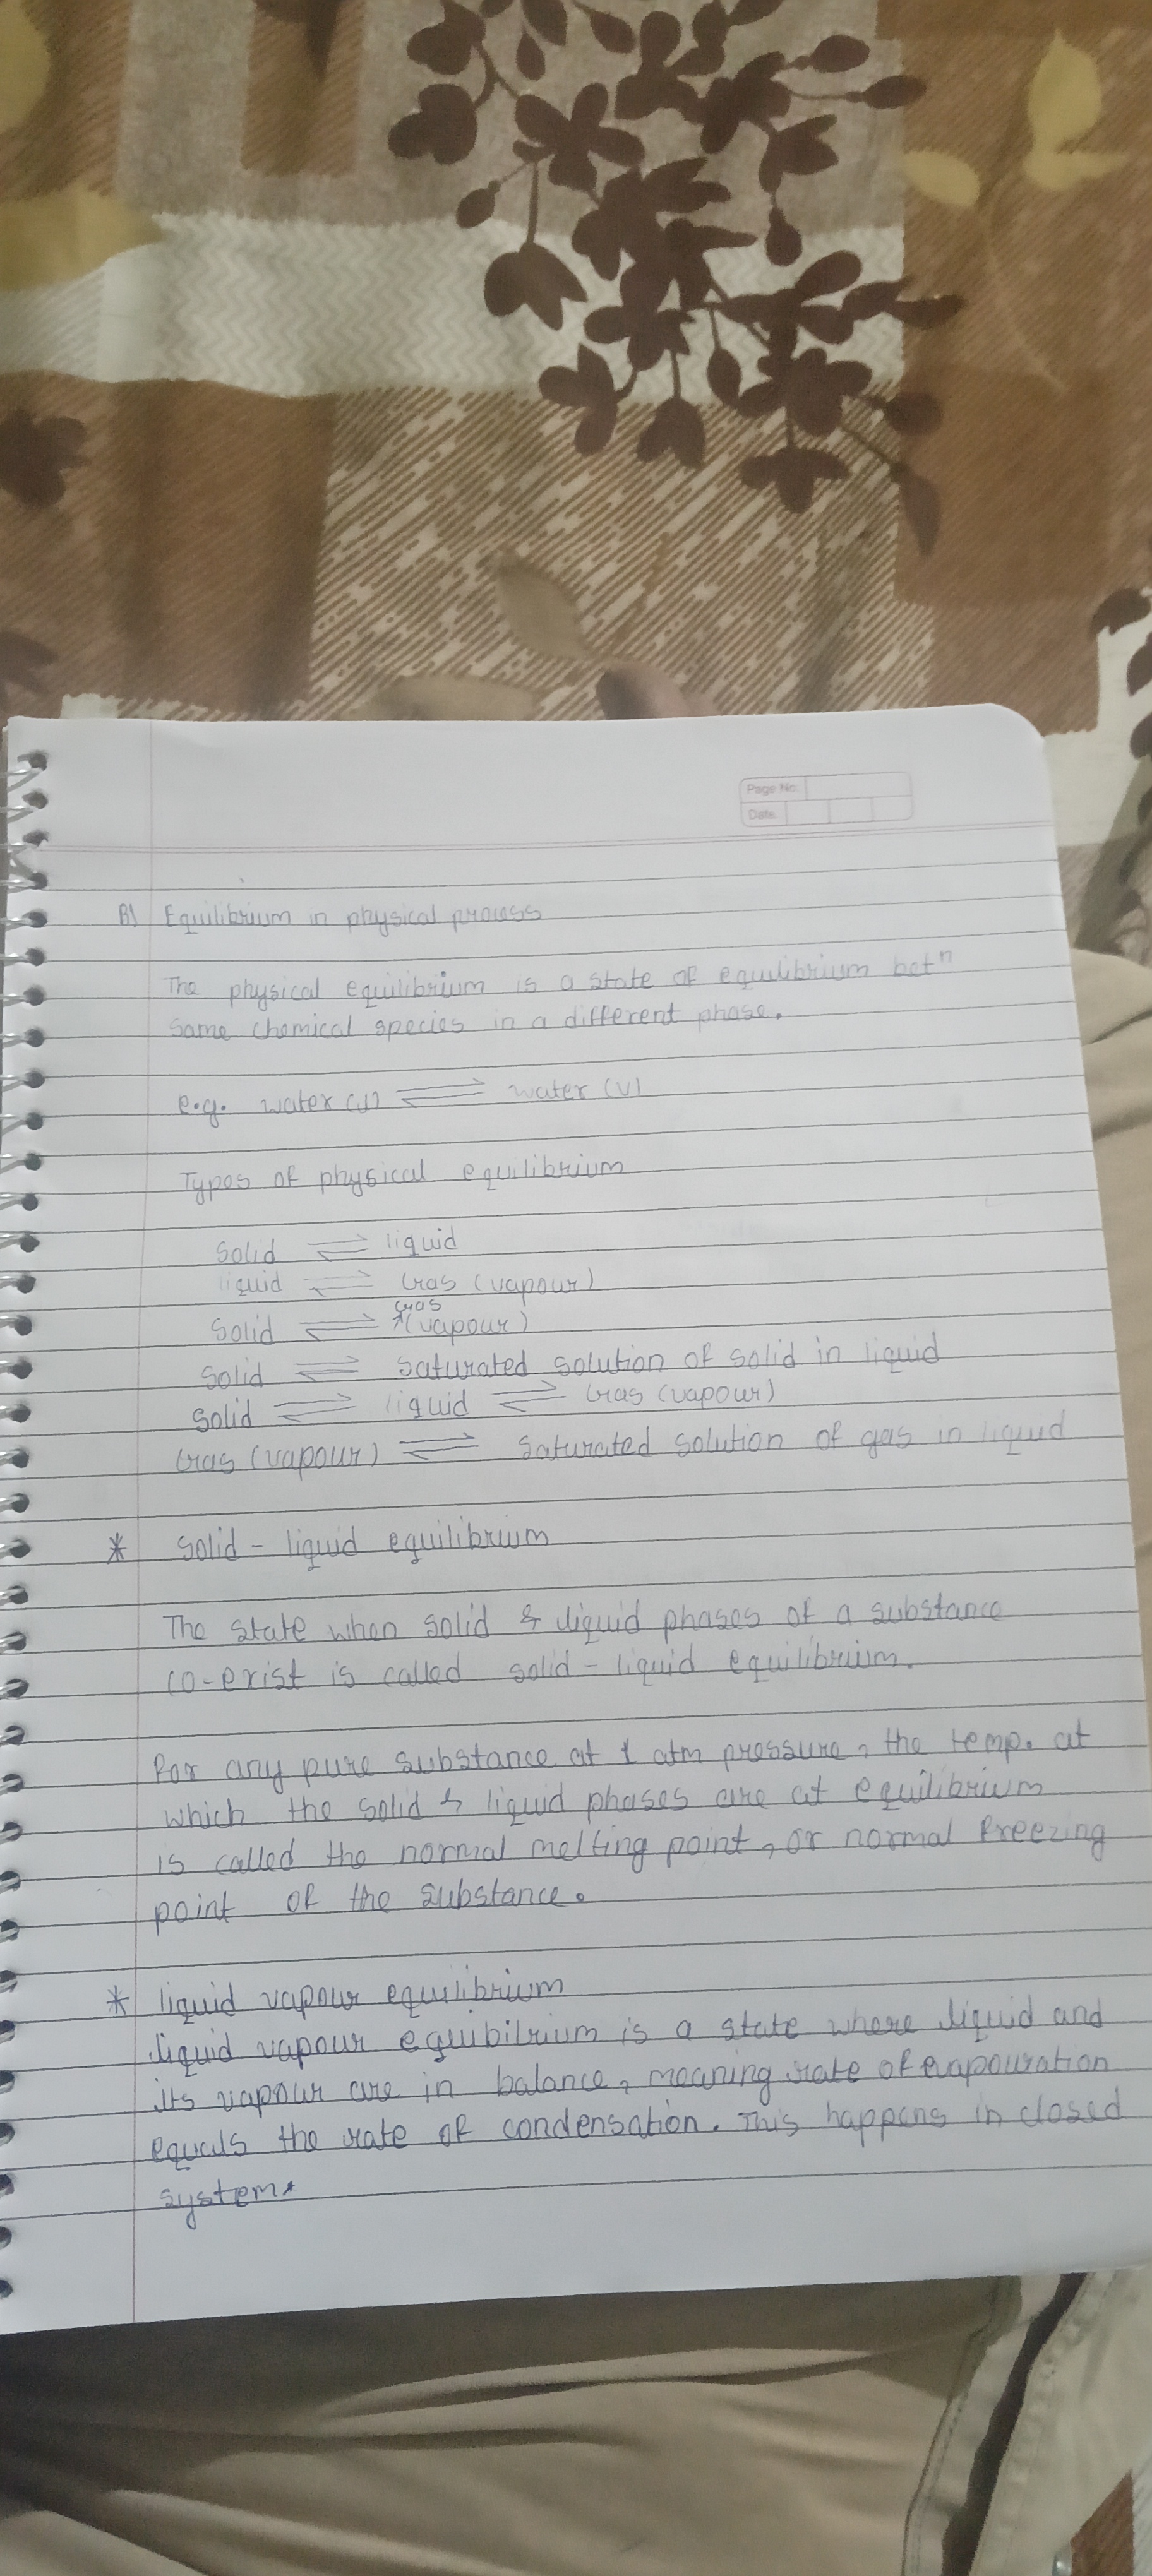 Page No.
Date
B) Equilibrium in physical process
The physical equilibrium is a state of equilibrium betⁿ
same chemical species in a different phase.
e.g. water (l) ⇌ water (v)
Types of physical equilibrium
Solid ⇌ liquid
liquid ⇌ Gas (vapour)
Gas
Solid ⇌ ^(vapour)
Solid ⇌ saturated solution of solid in liquid
Solid ⇌ liquid ⇌ Gas (vapour)
Gas (vapour) ⇌ saturated solution of gas in liquid
* Solid - liquid equilibrium
The state when solid & liquid phases of a substance
co-exist is called solid - liquid equilibrium.
For any pure substance at 1 atm pressure, the temp. at
which the solid & liquid phases are at equilibrium
is called the normal melting point, or normal freezing
point of the substance.
* liquid vapour equilibrium
liquid vapour equibilrium is a state where liquid and
its vapour are in balance, meaning rate of evapouration
equals the rate of condensation. This happens in closed
system.